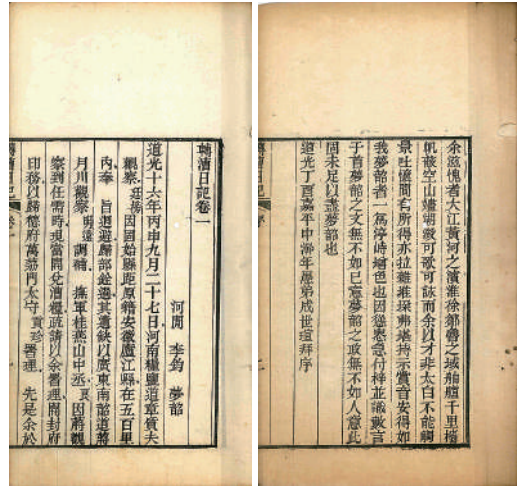 余滋愧者大江黃河之濱淮徐鄒魯之域舳艫千里檣
帆蔽空山歌可歌可詠而余以才非太白不能觸
景吐懷間有所得亦拉雜堆垛弗堪持示賞音安得如
我夢韶者一為停峙增色也因慫恿急付梓並識數言
于首夢韶之文無不如己意夢韶之政無不如人意此
固未足以盡夢韶也
道光丁酉嘉平中澣年愚弟成世瑄拜序
轉漕日記卷一
河間 李鈞 夢韶
道光十六年丙申九月二十七日河南糧鹽道章賁夫
觀察廷梅因固始縣距原籍安徽廬江縣在五百里
內奉 旨迴避歸部銓選其遺缺以廣東南韶道蔣
月川觀察明遠調補 撫軍桂燕山中丞良因蔣觀
察到任需時現當開兌漕糧疏請以余署理開封府
印務以歸德府萬荔門太守貢珍署理 先是余於